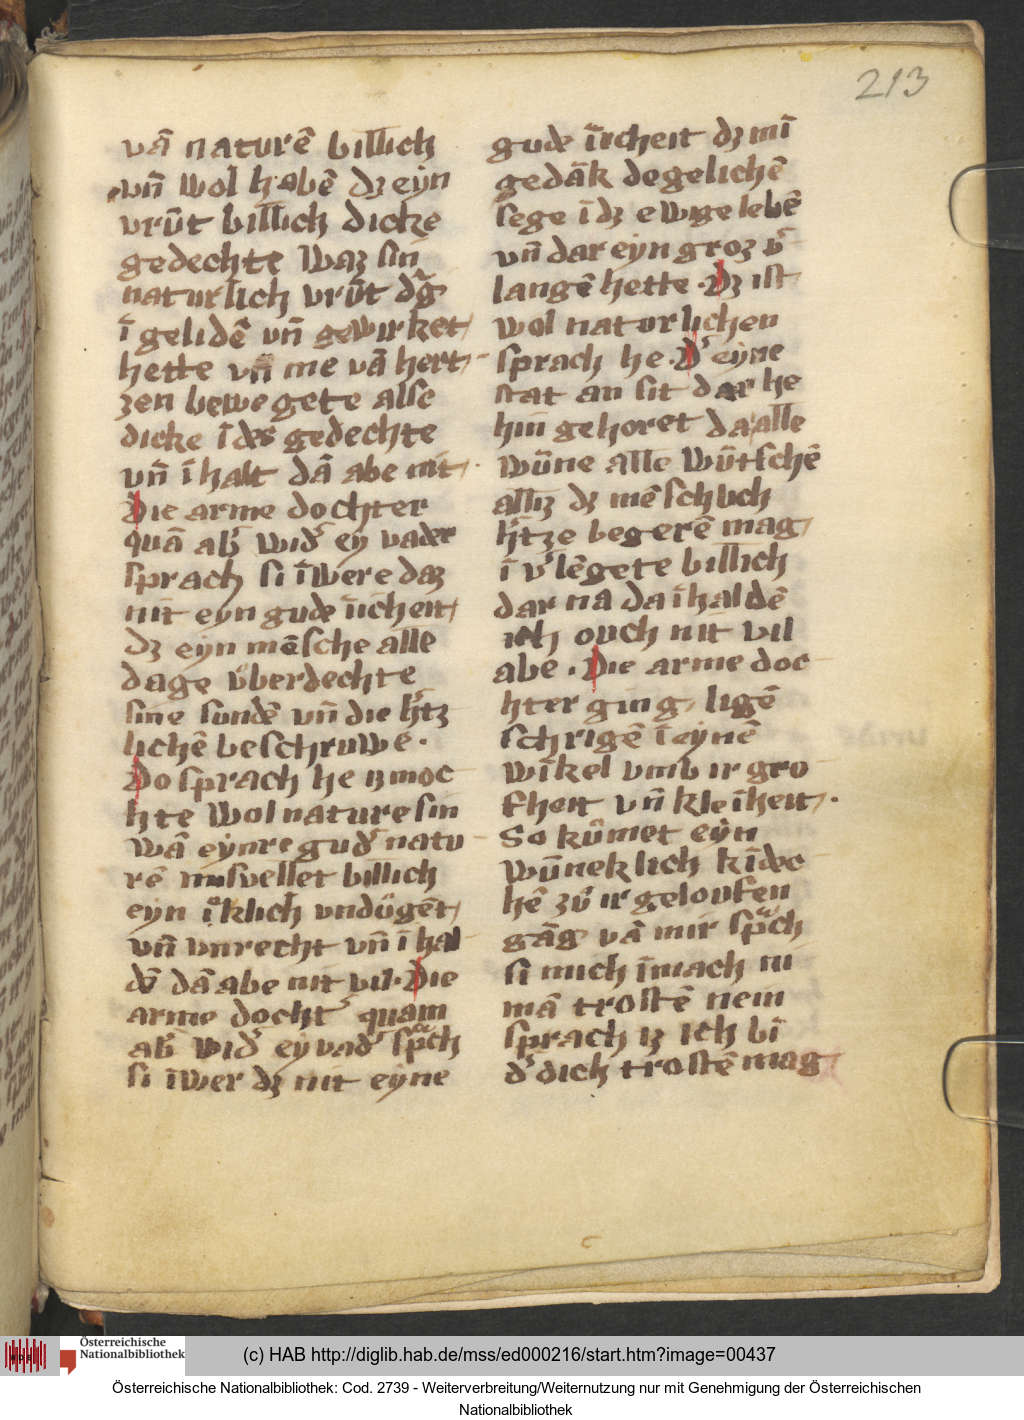 213
vā naturē billich
vn̄ wol habē dz eyn
vrūt billich dicke
gedechte waz sin
naturlich vrūt
ī gelidē vn̄ gewirket
hette vn̄ me vā hert
zen bewegete alse
dicke ī des gedechte
vn̄ ī halt dā abe nit
Die arme dochter
quā ab' wid' ey vader
sprach si īwere daz
nit eyn gude īicheit
dz eyn mēsche alle
dage v̊berdechte
sine sundē vn̄ die h'tz
lichē beschruwe .
Do sprach he iz moc
hte wol nature sin
wā eynre gud' natu
rē misvellet billich
eyn vndūgēt
vn̄ vnrecht vn̄ ī hal
dē dā abe nit vil . Die
arme docht' quam
ab' wid' ey vad' spͣch
si īwer dz nit eyne
gude īicheit dz mī
gedāk degelichē
sege ī dz ewige lebē
vn̄ dar eyn groz v'
langē hette . Dz ist
wol naturlichen
sprach he . D' eyne
stat an sit dar he
hin gehoret da alle
wūne alle wūtschē
alliz dz mēschuch
h'tze begerē mag
ī v'lēgete billich
dar na da ī haldē
ich ouch nit vil
abe . Die arme doc
hter ging ligē
schrigē ī eynē
wīkel vmb ir gro
fheit vn̄ kleīheit .
So kūmet eyn
wūneklich kīdec
hē zů ir geloufen
gāg vā mir spͣch
si mich īmach ni
mā trostē nein
sprach iz ich bī
d' dich trostē mag
Österreichische
Nationalbibliothek
(c) HAB http://diglib.hab.de/mss/ed000216/start.htm?image=00437
Österreichische Nationalbibliothek: Cod. 2739 - Weiterverbreitung/Weiternutzung nur mit Genehmigung der Österreichischen
Nationalbibliothek